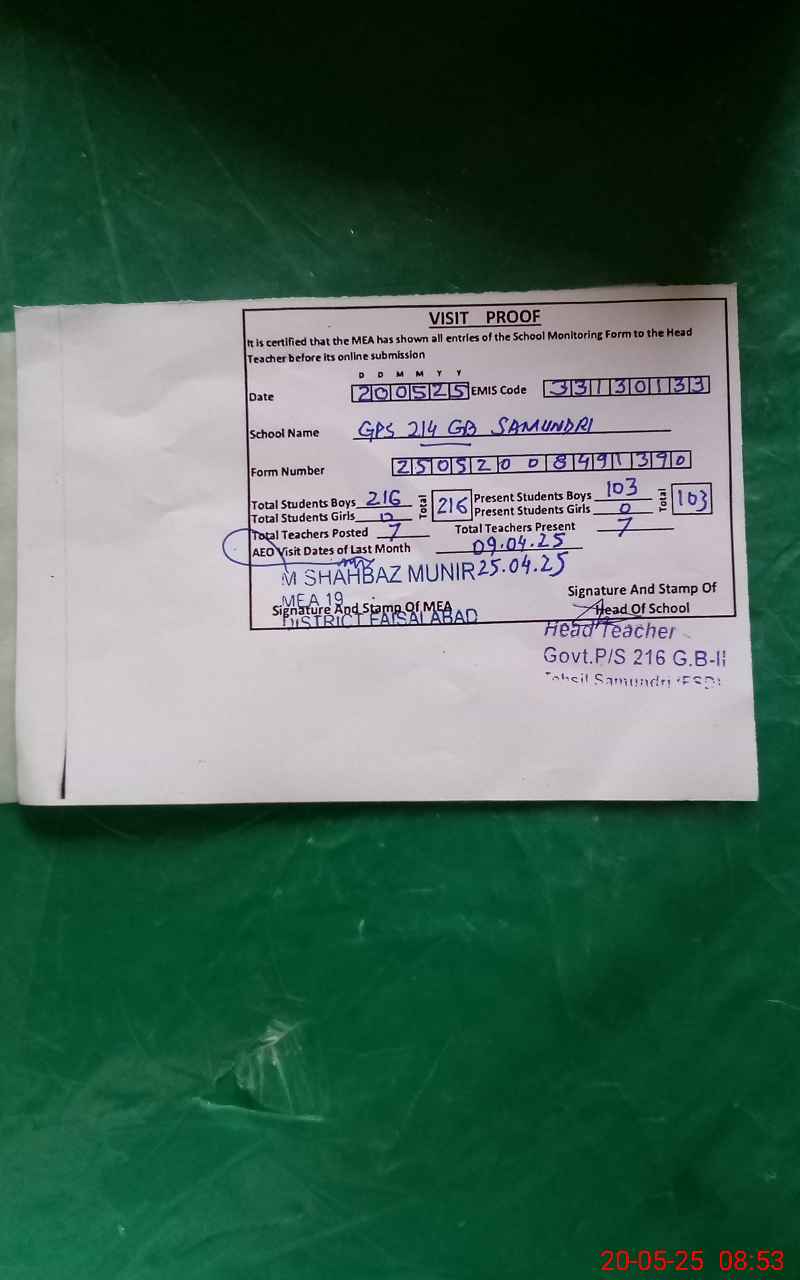 VISIT PROOF
It is certified that the MEA has shown all entries of the School Monitoring Form to the Head
Teacher before its online submission
D D M M Y Y
Date 200525 EMIS Code 33130133
School Name GPS 214 GB SAMUNDRI
Form Number 25052008491390
Total Students Boys 216 Total 216 Present Students Boys 103 Total 103
Total Students Girls 0 Present Students Girls 0
Total Teachers Posted 7 Total Teachers Present 7
AEO Visit Dates of Last Month 09.04.25
25.04.25
M SHAHBAZ MUNIR
MEA 19
DISTRICT FAISALABAD
Signature And Stamp Of MEA
Signature And Stamp Of
Head Of School
Head Teacher
Govt.P/S 216 G.B-II
Tehsil Samundri (FSD)
20-05-25 08:53